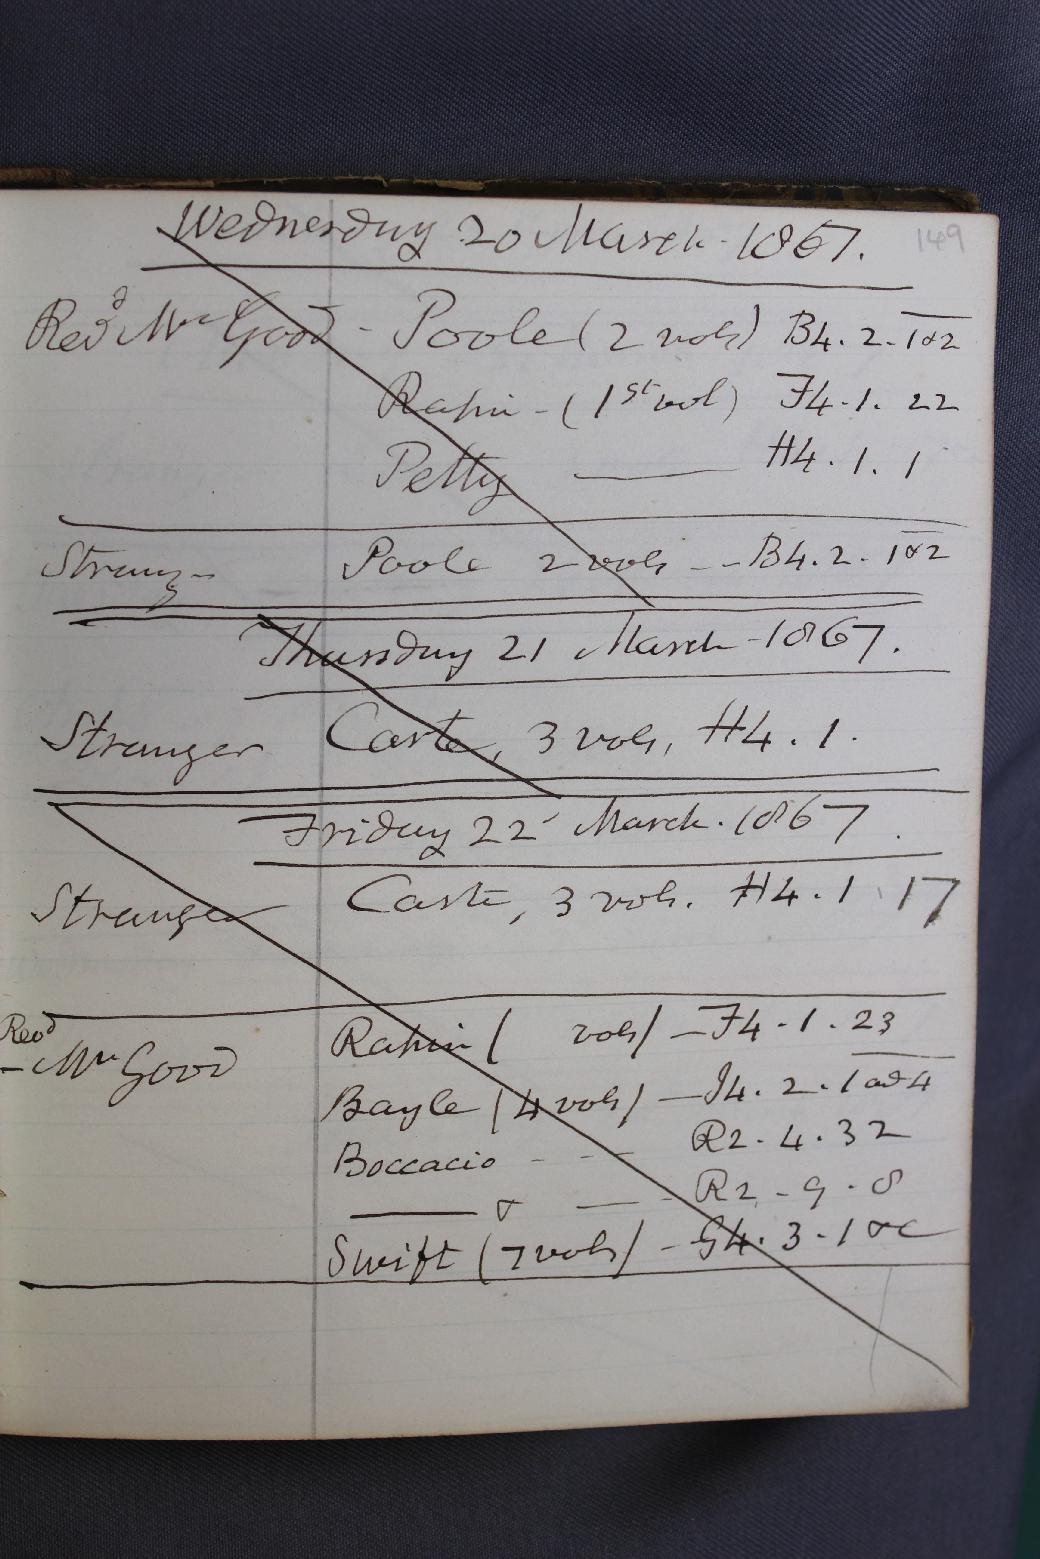 149
Wednesday 20 March - 1867.
Revd Mr Good - Poole (2 vols) B4. 2. 1&2
Rapin - (1st vol) F4. 1. 22
Petty —— H4. 1. 1
Strang - Poole 2 vols -- B4. 2. 1&2
Thursday 21 March - 1867.
Stranger Carte, 3 vols, H4. 1.
Friday 22 March. 1867.
Stranger Carte, 3 vols. H4. 1. 17
Revd
- Mr Good Rapin ( vols) - F4. 1. 23
Bayle (4 vols) - I4. 2. 1 ad 4
Boccacio - -- R2. 4. 32
—— & —— - R2 - 9 - 8
Swift (7 vols) - G4. 3. 1 &c